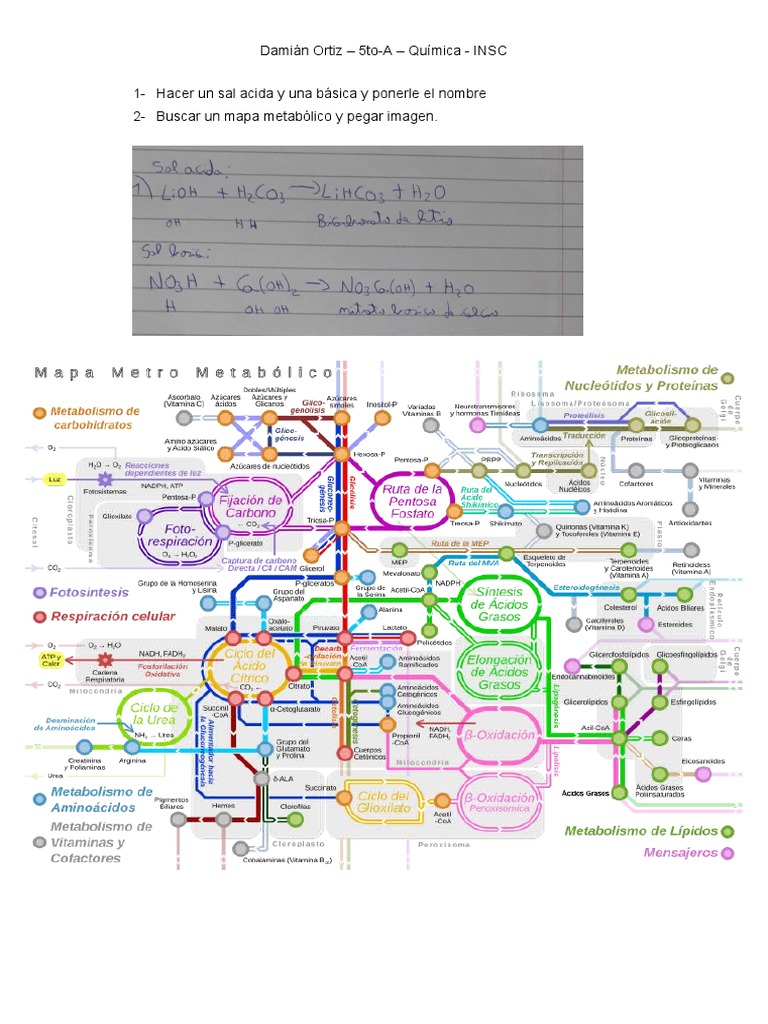 Damián Ortiz – 5to-A – Química - INSC
1- Hacer un sal acida y una básica y ponerle el nombre
2- Buscar un mapa metabólico y pegar imagen.
Sal acida:
1) LiOH + H₂CO₃ → LiHCO₃ + H₂O
OH H H Bicarbonato de litio
Sal basica:
NO₃H + Ca(OH)₂ → NO₃Ca(OH) + H₂O
H OH OH nitrato basico de calcio
Mapa Metro Metabólico
Metabolismo de
Nucleótidos y Proteínas
Metabolismo de
carbohidratos
Ascorbato
(Vitamina C)
Azúcares
ácidos
Dobles/Múltiples
Azúcares y
Glicanos
Glico-
genolisis
Azúcares
simples
Inositol-P
Glico-
génesis
Amino azúcares
y Ácido Siálico
Azúcares de nucleótidos
Hexosa-P
Variados
Vitaminas B
Neurotransmisores
y hormonas Tiroideas
Ribosoma
Lisosoma/Proteosoma
Proteólisis
Glicosil-
ación
Aminoácidos
Traducción
Proteínas
Glicoproteínas
y Proteoglicanos
Cuerpo
de
Golgi
Transcripción
y Replicación
Núcleo
Pentosa-P
PRPP
Nucleótidos
Ácidos
Nucléicos
Cofactores
Vitaminas
y Minerales
Antioxidantes
O₂
Luz
CO₂
H₂O → O₂
Reacciones
dependientes de luz
NADPH, ATP
Fotosistemas
Citosol
Cloroplasto
Peroxisoma
Pentosa-P
Glioxilato
Fijación de
Carbono
← CO₂
Foto-
respiración
O₂ → H₂O₂
P-glicerato
Triosa-P
Captura de carbono
Directa / C4 / CAM
Gluconeo-
génesis
Glicólisis
Glicerol
Ruta de la
Pentosa
Fosfato
Ruta del
Ácido
Shikímico
Triosa-P
Shikimato
Aminoácidos Aromáticos
y Histidina
Quinonas (Vitamina K)
y Tocoferoles (Vitamina E)
Plasto
Ruta de la MEP
MEP
Ruta del MVA
Esqueleto de
Terpenoides
Terpenoides
y Carotenoides
(Vitamina A)
Retinoides
(Vitamina A)
Fotosintesis
Respiración celular
Grupo de la Homoserina
y Lisina
Grupo del
Aspartato
P-gliceratos
Grupo de
la Serina
Alanina
Mevalonato
Acetil-CoA
NADPH
Síntesis
de Ácidos
Grasos
Esteroidogénesis
Colesterol
Ácidos Biliares
Calciferoles
(Vitamina D)
Esteroides
Retículo
Endoplásmico
Malato
Oxalo-
acetato
Piruvato
Lactato
Fermentación
Policétidos
Decarb-
oxilación
de Piruvato
Acetil
-CoA
Aminoácidos
Ramificados
Elongación
de Ácidos
Grasos
O₂
ATP y
Calor
CO₂
H₂O
NADH, FADH₂
Fosforilación
Oxidativa
Cadena
Respiratoria
Mitocondria
Ciclo del
Ácido
Cítrico
CO₂ ←
Citrato
Succinil
-CoA
α-Cetoglutarato
Aminoácidos
Cetogénicos
Aminoácidos
Glucogénicos
Propenil
-CoA
NADH,
FADH₂
β-Oxidación
Lipogénesis
Lipólisis
Endocannabinoides
Glicerofosfolípidos
Glicoesfingolípidos
Glicerolípidos
Esfingolípidos
Acil-CoA
Ceras
Eicosanoides
Ácidos Grasos
Ácidos Grasos
Poliinsaturados
Cuerpo
de
Golgi
Ciclo de
la Urea
NH₃ → Urea
Deaminación
de Aminoácidos
Creatinina
y Poliaminas
Arginina
Urea
Alimentador hacia
la Gluconeogénesis
Grupo del
Glutamato
y Prolina
Cuerpos
Cetónicos
Mitocondria
δ-ALA
Succinato
Ciclo del
Glioxilato
Acetil
-CoA
β-Oxidación
Peroxisomica
Peroxisoma
Metabolismo de
Aminoácidos
Metabolismo de
Vitaminas y
Cofactores
Pigmentos
Biliares
Hemes
Clorofilas
Cloroplasto
Cobalaminas (Vitamina B₁₂)
Metabolismo de Lípidos
Mensajeros